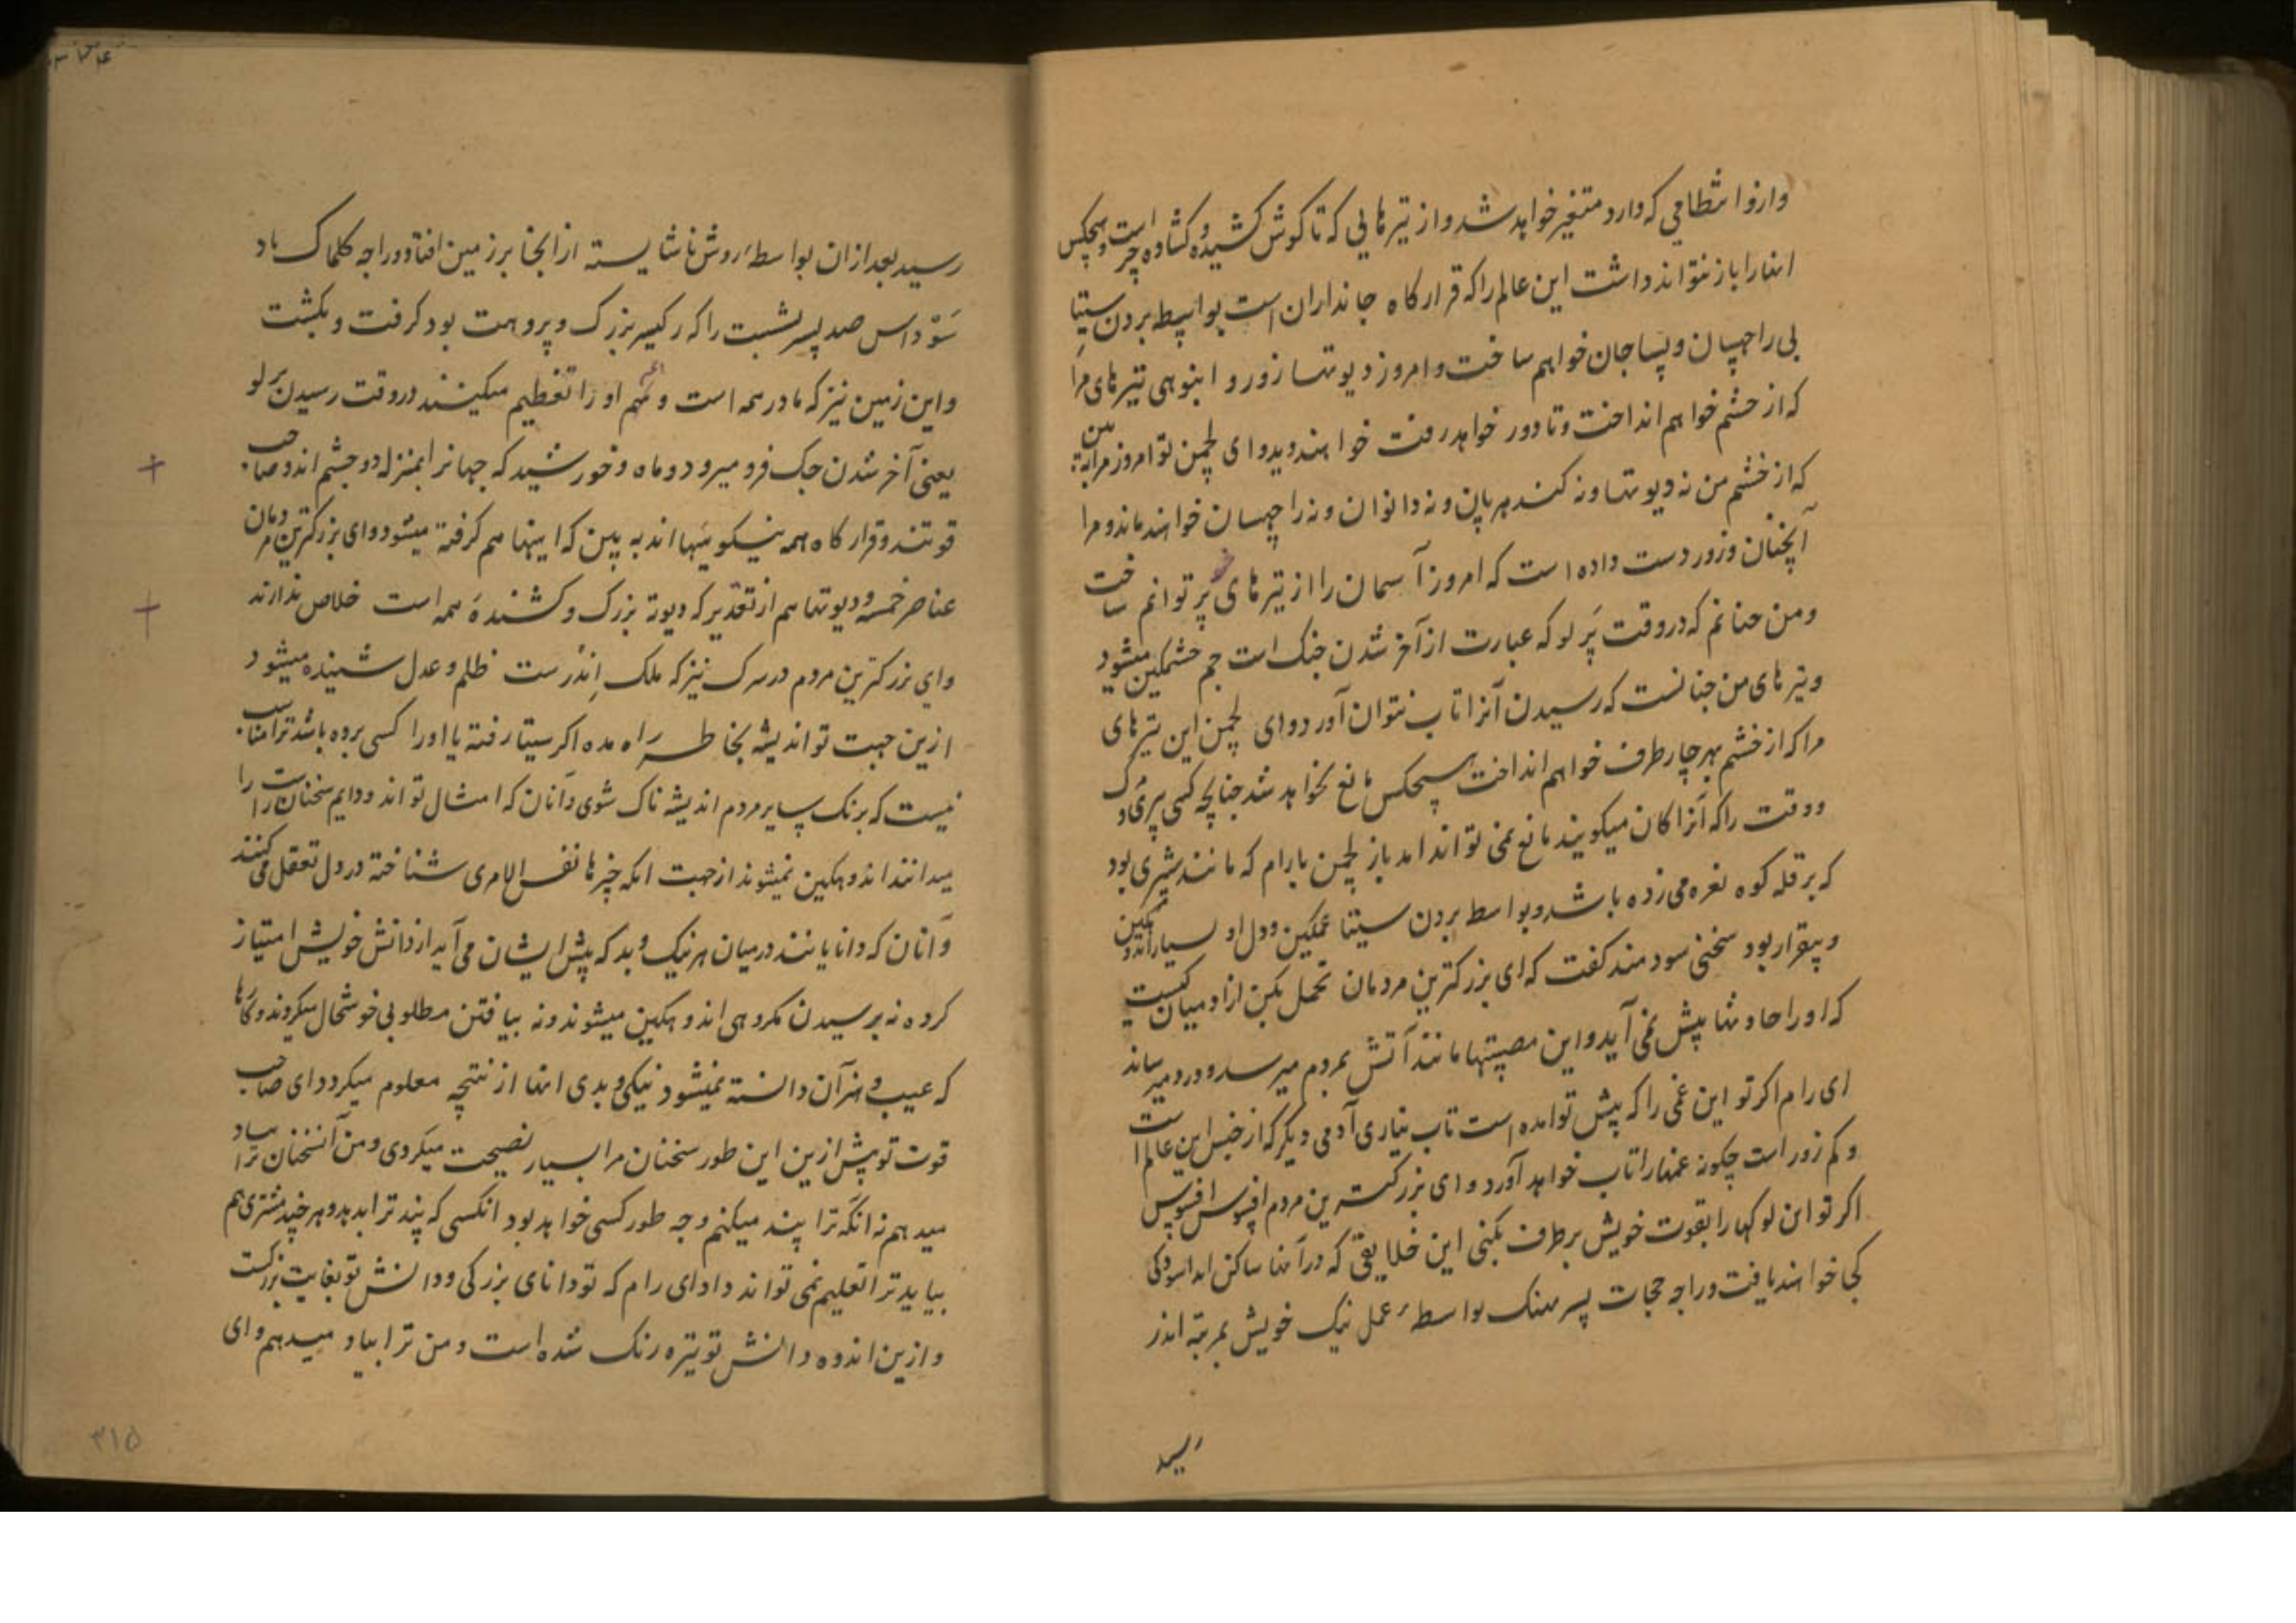 و از و انتظامی که دارد متغیر خواهد شد و از تیرهایی که تا گوش کشیده و کشاده و هیچکس
انها را باز نتواند داشت این عالم را که قرارگاه جانداران است بواسطه بردن سیتا
بی راچهسان و پساجان خواهم ساخت و امروز دیوتها زور و انبوهی تیرهای مرا
که از خشم خواهم انداخت و تا دور خواهد رفت خواهند دید و ای لچمن تو امروز مرا به بین
که از خشم من نه دیوتها و نه کندهربان و نه دانوان و نه راچهسان خواهند ماند و مرا
آنچنان زور دست داده است که امروز آسمان را از تیرهای پر توانم ساخت
و من چنانم که در وقت پرلو که عبارت از آخر شدن جک است جم خشمکین میشود
و تیرهای من چنانست که رسیدن آنرا تاب نتوان آورد و ای لچمن این تیرهای
مرا که از خشم بهر چار طرف خواهم انداخت هیچکس مانع نخواهد شد چنانچه کسی پیری و مرگ
و وقت را که آنرا کان میکویند مانع نمی تواند امد باز لچمن با رام که مانند شیری بود
که بر قله کوه نعره می زده باشد و بواسطه بردن سیتا غمکین و دل او بسیار اندوهکین
و بیقرار بود سخنی سودمند کفت که ای بزرکترین مردمان تحمل بکن از ادمیان کیست
که او را حادثها پیش نمی آید و این مصیبتها مانند آتش بمردم میرسد و درد میرساند
ای رام اکر تو این غمی را که پیش تو امده است تاب نیاری آدمی دیکر که از جنس این عالم است
و کم زور است چکونه غمها را تاب خواهد آورد و ای بزرکترین مردم افسوس افسوس
اکر تو این لوکها را بقوت خویش برطرف بکنی این خلایقی که در آنها ساکن اند اسودکی
کجا خواهند یافت و راجه ججات پسر نهک بواسطه عمل نیک خویش بمرتبه اندر
رسید
رسید بعد ازان بواسطه روش ناشایسته از انجا بر زمین افتاد و راجه کلماک باد
سوداس صد پسر بشست را که رکیسر بزرک و پروهت بود کرفت و بکشت
و این زمین نیز که مادر همه است و همه او را تعظیم میکنند در وقت رسیدن پرلو
یعنی آخر شدن جک فرو میرود و ماه و خورشید که جهانرا بمنزله دو چشم اند و صاحب
قوتند و قرارگاه همه نیکوییها اند به بین که اینها هم کرفته میشود و ای بزرکترین مردمان
عناصر خمسه و دیوتها هم از تقدیر که دیوته بزرک و کشنده همه است خلاص ندارند
و ای بزرکترین مردم در سرک نیز که ملک اندرست ظلم و عدل شنیده میشود
ازین جهت تو اندیشه بخاطر راه مده اکر سیتا رفته یا او را کسی برده باشد ترا مناسب
نیست که برنک سایر مردم اندیشه ناک شوی و آنان که امثال تو اند و دایم سخنان راست را
میدانند اندوهکین نمیشوند از جهت انکه چیزها نفس الامری شناخته در دل تعقل می کنند
و آنان که دانایانند در میان هر نیک و بد که پیش ایشان می آید از دانش خویش امتیاز
کرده نه برسیدن مکروهی اندوهکین میشوند و نه بیافتن مطلوبی خوشحال میکردند و کارها
که عیب و هنر آن دانسته نمیشود نیکی و بدی انها از نتیجه معلوم میکردد ای صاحب
قوت تو پیش ازین این طور سخنان مرا بسیار نصیحت میکردی و من آنسخنان ترا بیاد
میدهم نه انکه ترا پند میکنم و چه طور کسی خواهد بود انکسی که پند ترا بدهد و هر چند مشتری هم
بیاید ترا تعلیم نمی تواند داد ای رام که تو دانای بزرکی و دانش تو بغایت بزرکست
و ازین اندوه دانش تو تیره رنک شده است و من ترا بیاد میدهم و ای
۳۱۵